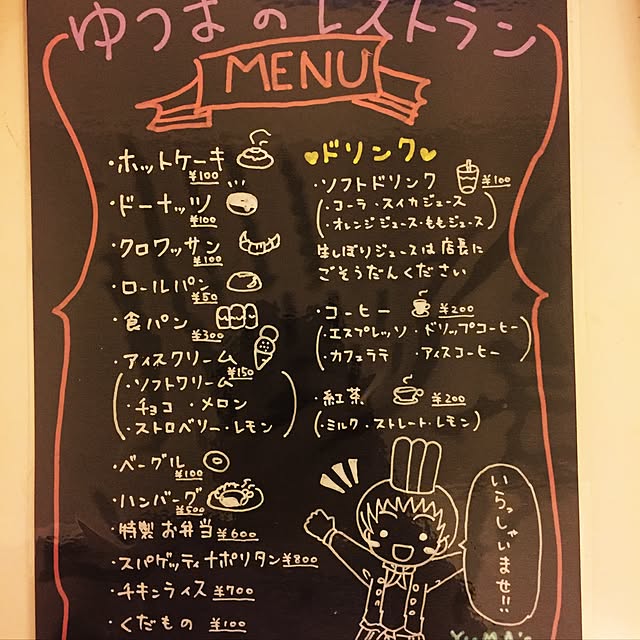 ゆつまのレストラン
MENU
・ホットケーキ
¥100
・ドーナッツ
¥100
・クロワッサン
¥100
・ロールパン
¥50
・食パン
¥300
・アイスクリーム
¥150
・ソフトクリーム
・チョコ ・メロン
・ストロベリー・レモン
・ベーグル
¥100
・ハンバーグ
¥500
・特製お弁当 ¥600
・スパゲッティナポリタン ¥800
・チキンライス ¥700
・くだもの ¥100
ドリンク
・ソフトドリンク ¥100
・コーラ ・スイカジュース
・オレンジジュース・ももジュース
生しぼりジュースは店長に
ごそうだんください
・コーヒー ¥200
・エスプレッソ ・ドリップコーヒー
・カフェラテ ・アイスコーヒー
・紅茶 ¥200
・ミルク・ストレート・レモン
いらっしゃいませ!!